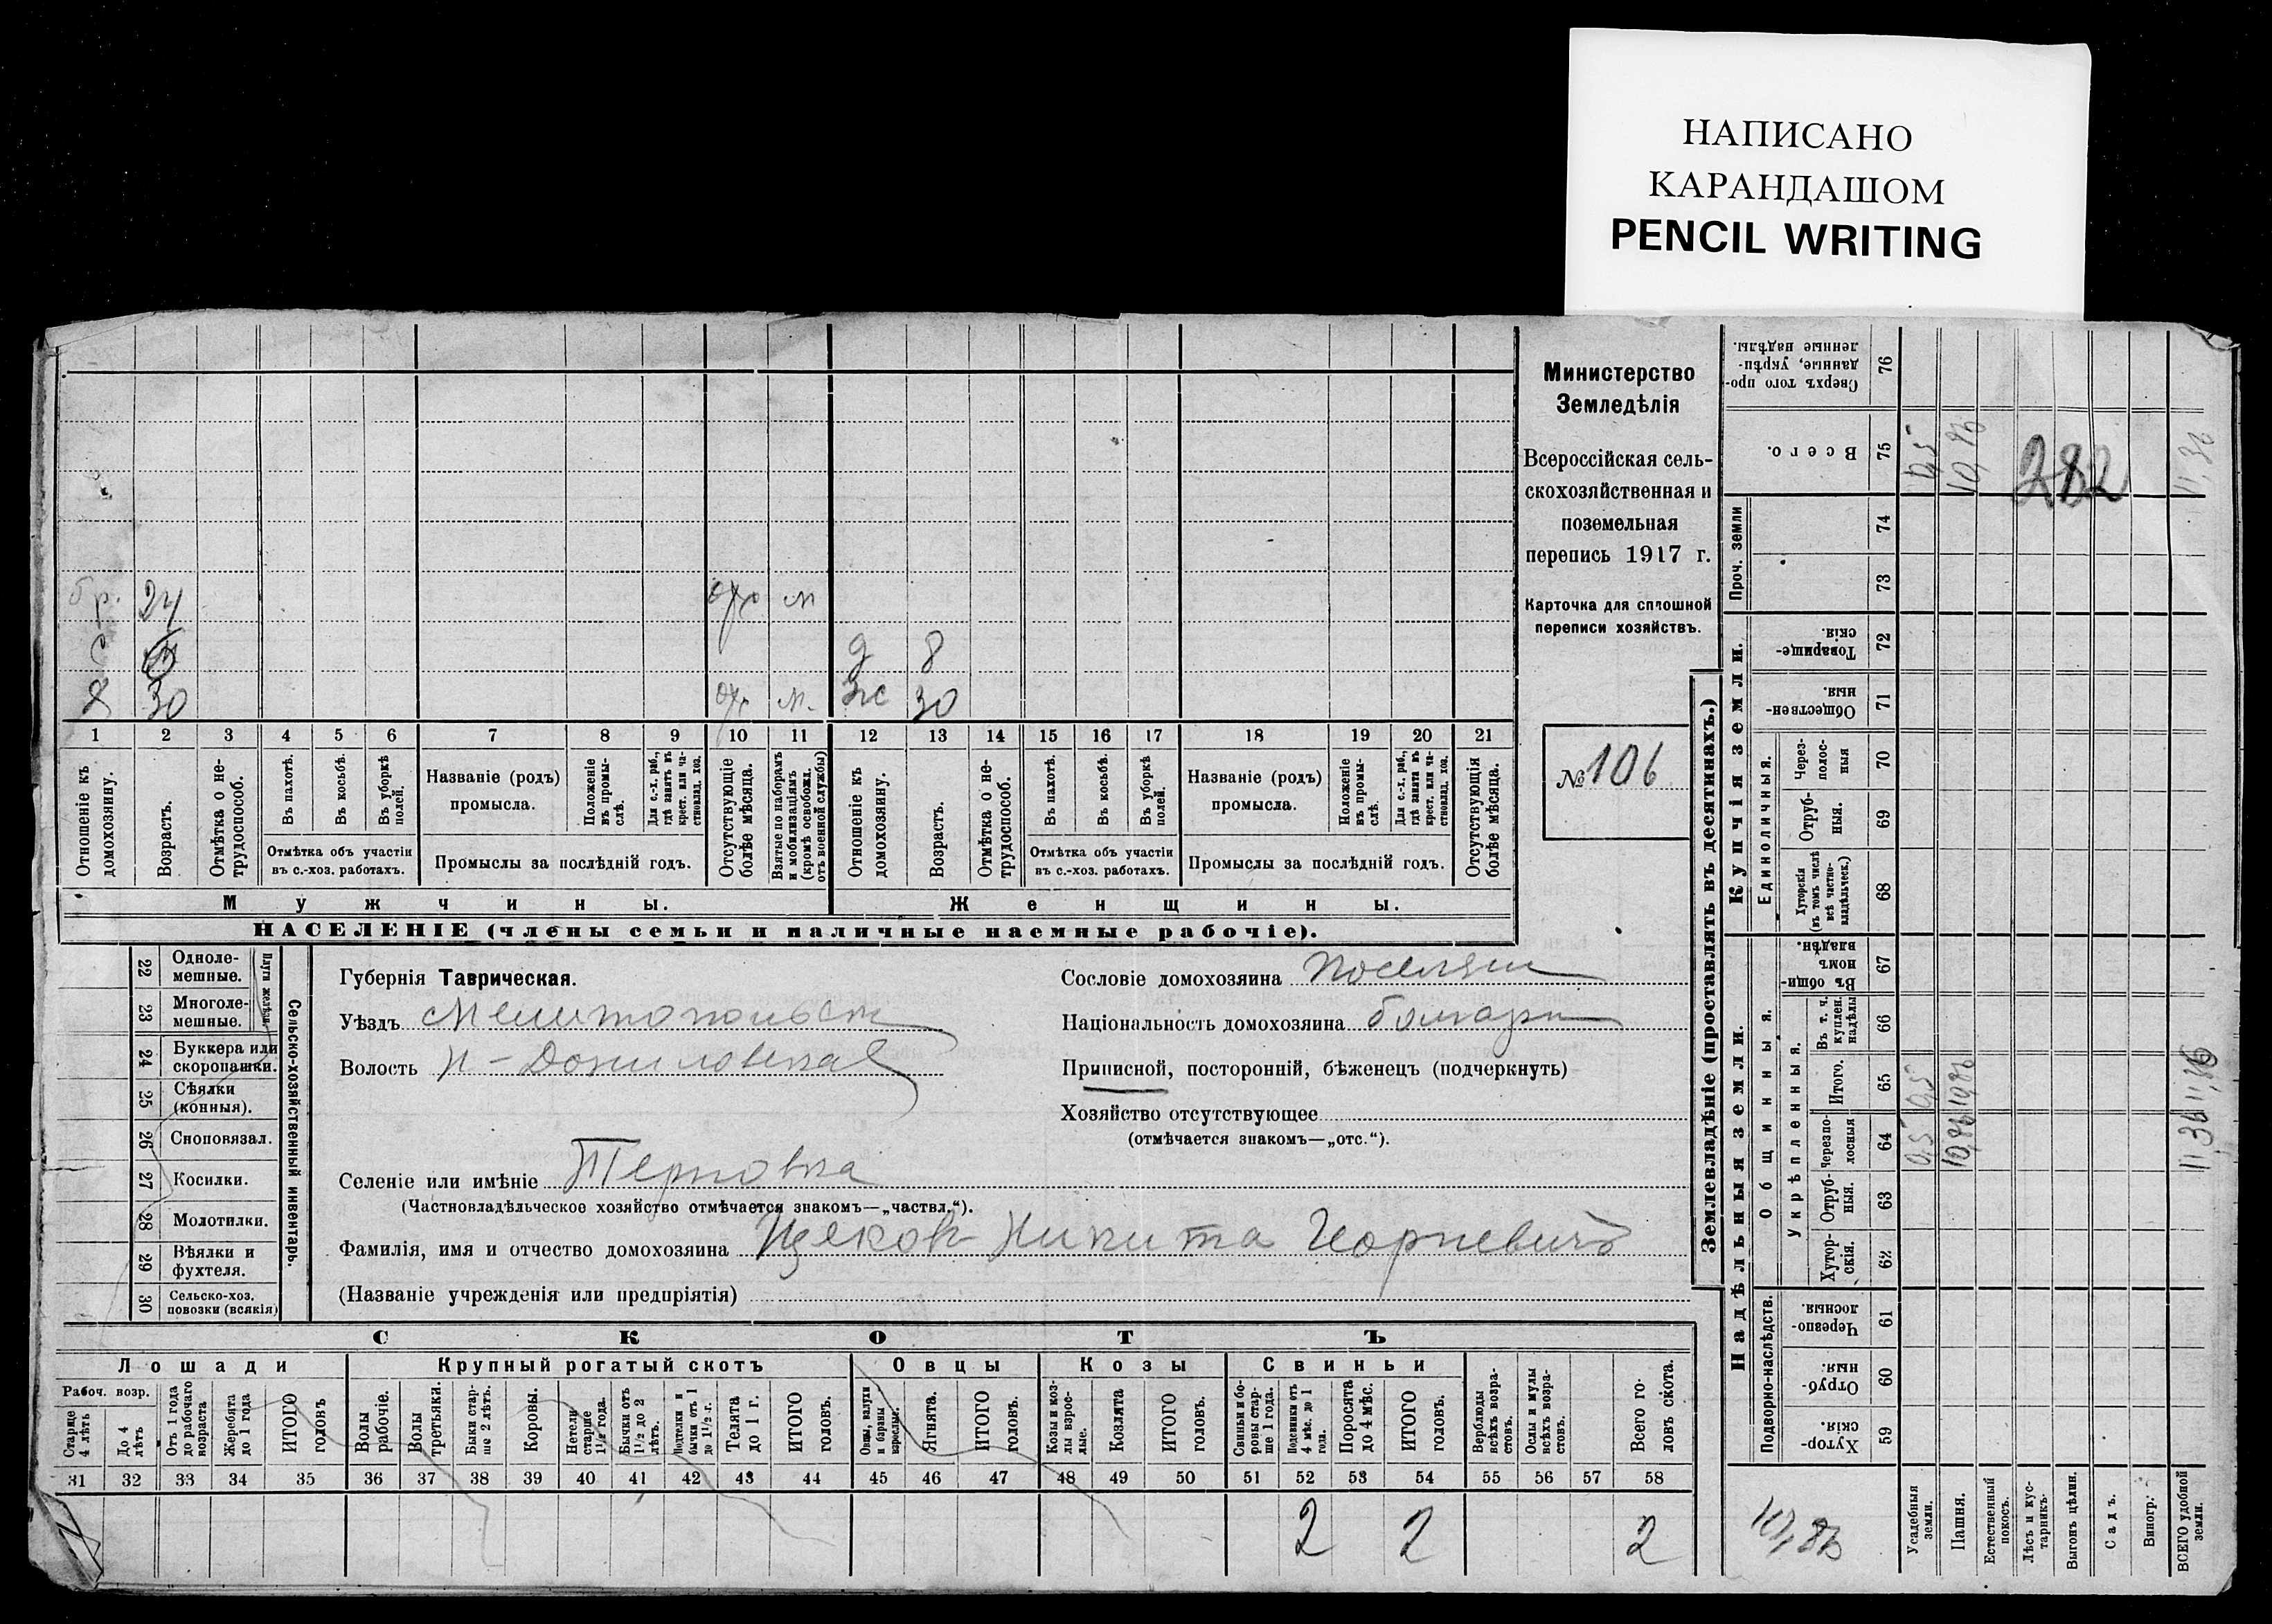 НАПИСАНО
КАРАНДАШОМ
PENCIL WRITING
Министерство
Земледѣлія
Всероссійская сель-
скохозяйственная и
поземельная
перепись 1917 г.
Карточка для сплошной
переписи хозяйствъ.
№ 106
бр. 24 отс м
с
Х 30 отс м.
д 8
ж 30
1 2 3 4 5 6 7 8 9 10 11 12 13 14 15 16 17 18 19 20 21
Отношеніе къ домохозяину.
Возрастъ.
Отмѣтка о не-трудоспособ.
Въ пахотѣ.
Въ косьбѣ.
Въ уборкѣ полей.
Отмѣтка объ участіи
въ с.-хоз. работахъ.
Названіе (родъ)
промысла.
Положеніе въ промы-слѣ.
Для с.-х. раб., гдѣ занятъ въ крест. или ча-стновлад. хоз.
Промыслы за послѣдній годъ.
Отсутствующіе болѣе мѣсяца.
Взятые по наборамъ и мобилизаціямъ (кромѣ освобожд. отъ военной службы)
Отношеніе къ домохозяину.
Возрастъ.
Отмѣтка о не-трудоспособ.
Въ пахотѣ.
Въ косьбѣ.
Въ уборкѣ полей.
Отмѣтка объ участіи
въ с.-хоз. работахъ.
Названіе (родъ)
промысла.
Положеніе въ промы-слѣ.
Для с.-х. раб., гдѣ занята въ крест. или ча-стновлад. хоз.
Промыслы за послѣдній годъ.
Отсутствующія болѣе мѣсяца.
Мужчины.
Женщины.
НАСЕЛЕНІЕ (члены семьи и наличные наемные рабочіе).
Сельско-хозяйственный инвентарь.
Плуги желѣзн.
22 Одноле-мешные.
23 Многоле-мешные.
24 Буккера или скоропашки.
25 Сѣялки (конныя).
26 Сноповязал.
27 Косилки.
28 Молотилки.
29 Вѣялки и фухтеля.
30 Сельско-хоз. повозки (всякія)
Губернія Таврическая.
Уѣздъ Мелитопольск
Волость Н-Даниловская
Селеніе или имѣніе Терновка
(Частновладѣльческое хозяйство отмѣчается знакомъ—„частвл.“).
Фамилія, имя и отчество домохозяина Щеков Никита Георгиевичъ
(Названіе учрежденія или предпріятія)
Сословіе домохозяина поселян
Національность домохозяина болгарин
Приписной, посторонній, бѣженецъ (подчеркнуть)
Хозяйство отсутствующее
(отмѣчается знакомъ—„отс.“).
СКОТЪ
Лошади
Рабоч. возр.
Старше 4 лѣтъ
До 4 лѣтъ
Отъ 1 года до рабочаго возраста
Жеребята до 1 года
ИТОГО головъ
Крупный рогатый скотъ
Волы рабочіе.
Волы третьяки.
Быки стар-ше 2 лѣтъ.
Коровы.
Нетели старше 1½ года.
Бычки отъ 1½ до 2 лѣтъ.
Подтелки и бычки отъ 1 до 1½ г.
Телята до 1 г.
ИТОГО головъ.
Овцы
Овцы, валухи и бараны взрослые.
Ягнята.
ИТОГО головъ.
Козы
Козы и коз-лы взрос-лые.
Козлята
ИТОГО головъ.
Свиньи
Свиньи и бо-ровы стар-ше 1 года.
Подсвинки отъ 4 мѣс. до 1 года.
Поросята до 4 мѣс.
ИТОГО головъ.
Верблюды всѣхъ возра-стовъ.
Ослы и мулы всѣхъ возра-стовъ.
Всего го-ловъ скота.
31 32 33 34 35 36 37 38 39 40 41 42 43 44 45 46 47 48 49 50 51 52 53 54 55 56 57 58
2 2 2
Землевладѣніе (проставлять въ десятинахъ.)
Купчія земли.
Надѣльныя земли.
Сверхъ того про-данные, укрѣп-ленные надѣлы. 76
Всего. 75
Проч. земли 74 73
Товарище-скія. 72
Обществен-ныя. 71
Единоличныя.
Через-полос-ныя 70
Отруб-ныя. 69
Хуторскія (въ томъ числѣ всѣ частно-владѣльческ.) 68
Общинныя.
Въ общин-номъ владѣн. 67
Укрѣпленныя.
Въ т. ч. куплен. надѣлы 66
Итого. 65
Черезпо-лосныя 64
Отруб-ныя. 63
Хутор-скія. 62
Подворно-наслѣдств.
Черезпо-лосныя. 61
Отруб-ныя. 60
Хутор-скія. 59
Усадебныя земли.
Пашня.
Естественный покосъ.
Лѣсъ и кус-тарникъ.
Выгонъ цѣлин.
Садъ.
Виногр.
ВСЕГО удобной земли.
0,5 10,86 282 11,36
0,5 0,5
10,86 10,86
11,36 11,36
10,86